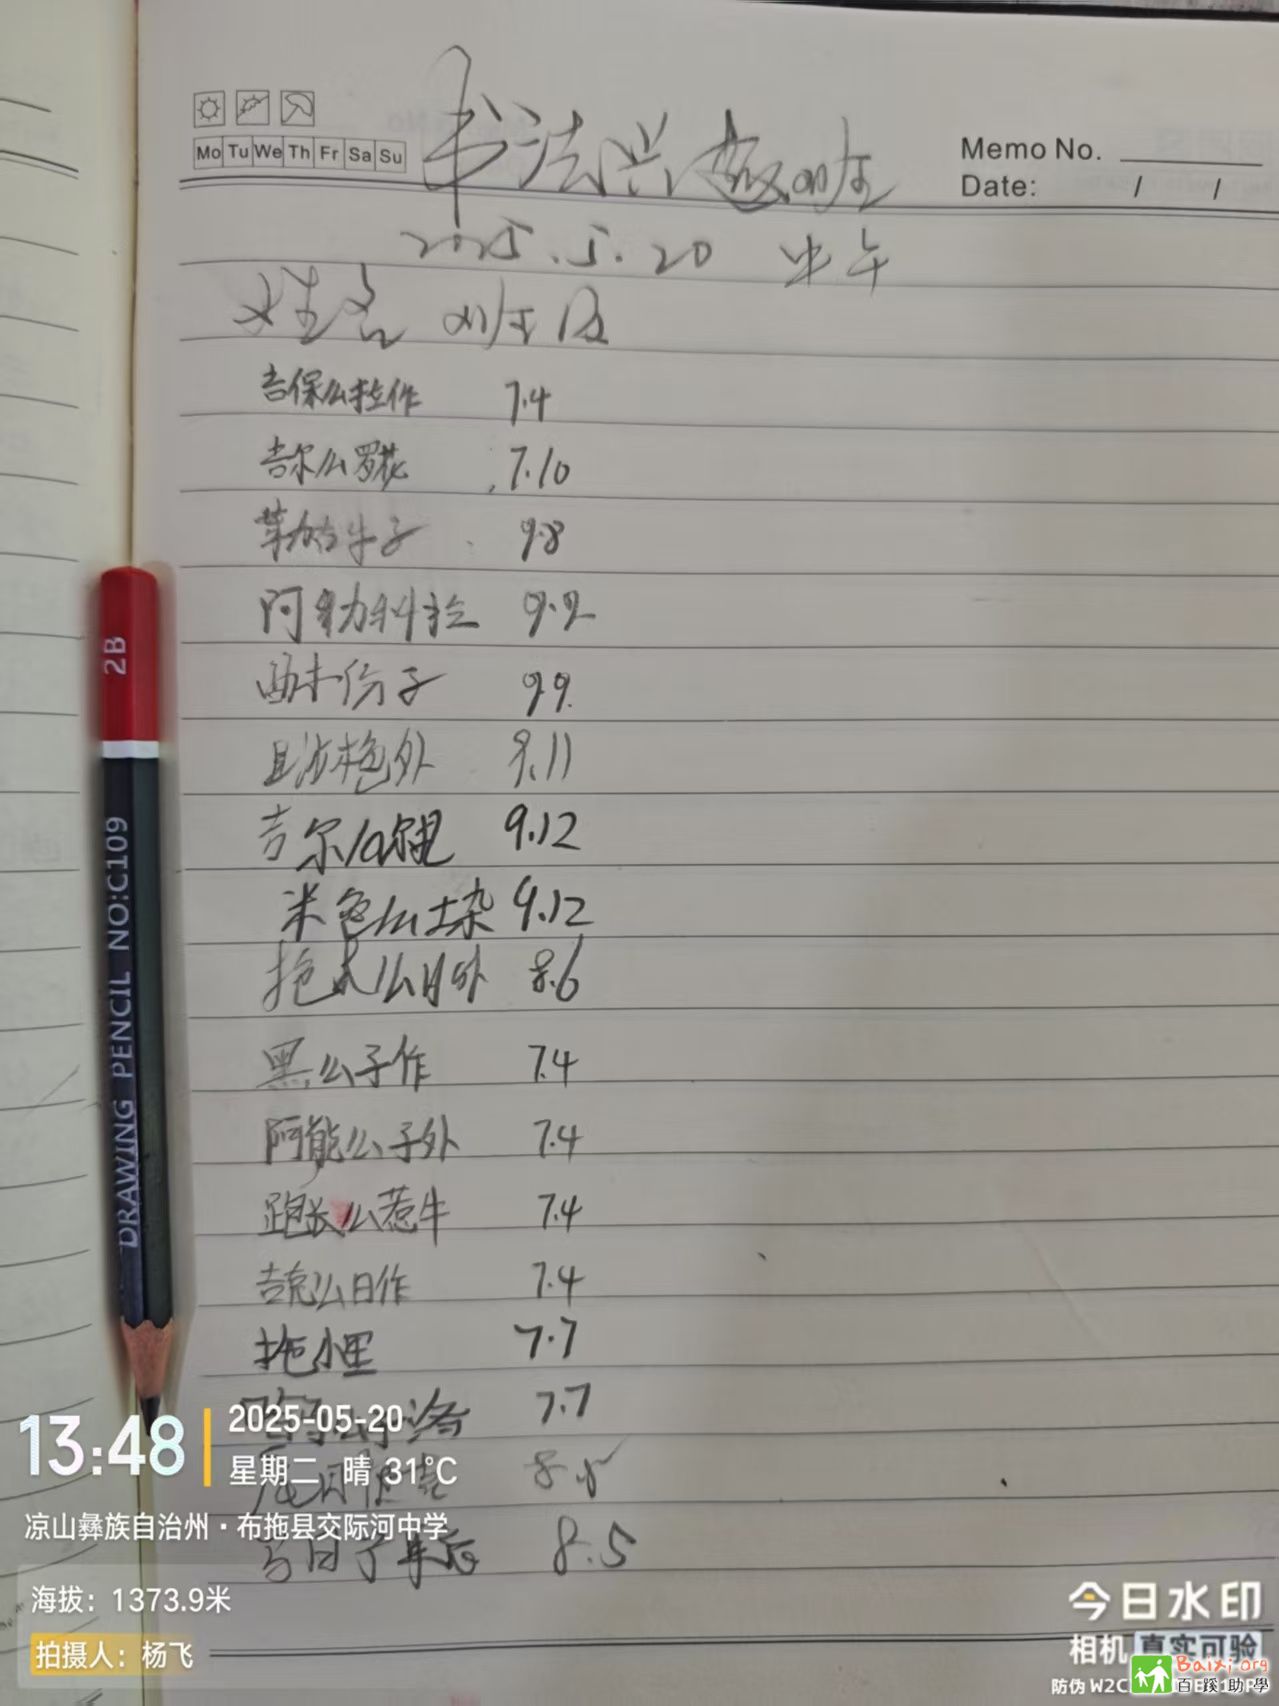 书法兴趣班
Mo Tu We Th Fr Sa Su
Memo No.
Date: / /
2025.5.20 中午
姓名 班级
吉保么拉作 7.4
吉尔么罗花 7.10
牛子 9.8
阿勒科拉 9.2
子 9.9
且沙格外 9.11
吉尔 9.12
米色么土杂 9.12
拖 么日外 8.6
黑么子作 7.4
阿能么子外 7.4
跑长么惹牛 7.4
吉克么日作 7.4
拖小里 7.7
7.7
8.5
8.5
2B
DRAWING PENCIL NO:C109
13:48
2025-05-20
星期二 晴 31°C
凉山彝族自治州·布拖县交际河中学
海拔：1373.9米
拍摄人：杨飞
今日水印
相机 真实可验
防伪 W2C
Baixi.org
百蹊助學